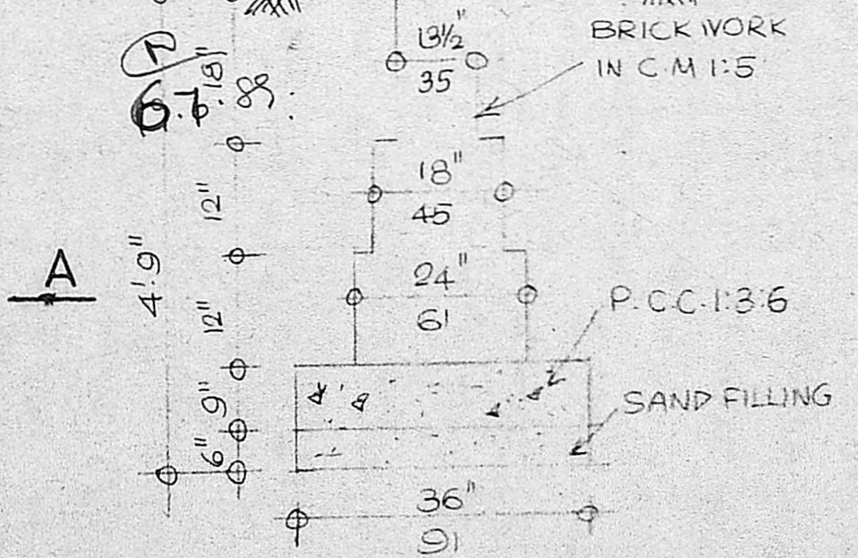 13½"
35
BRICKWORK
IN C.M 1:5
18"
18"
45
12"
4'.9"
A
24"
61
12"
P.C.C.1:3:6
9"
SAND FILLING
6"
36"
91